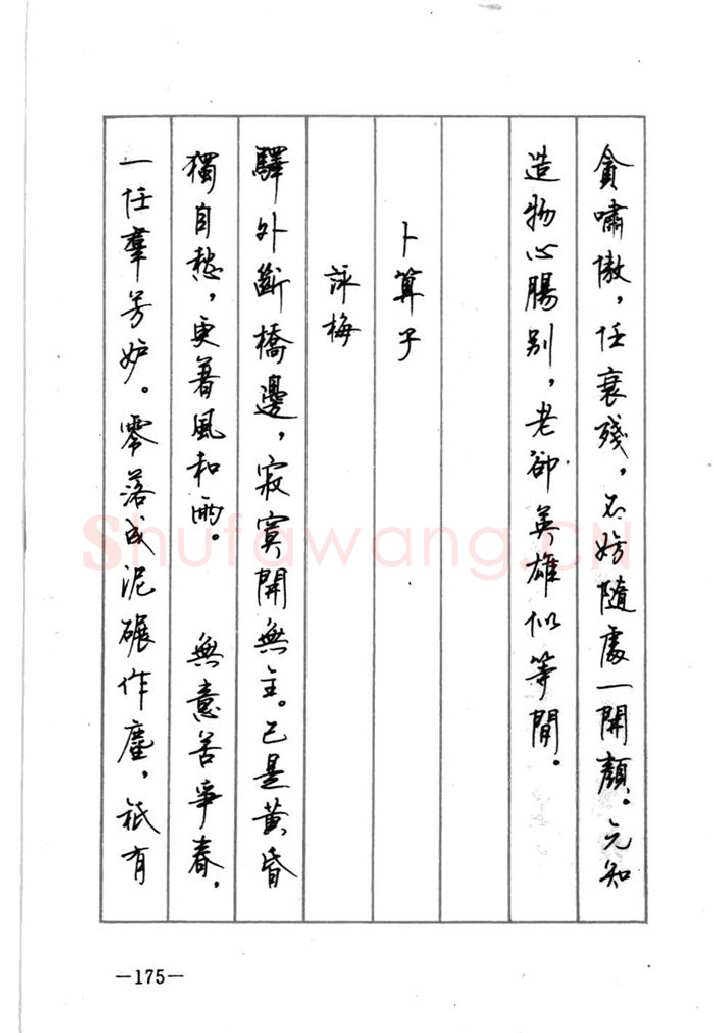 貪嘯傲，任衰殘，不妨隨處一開顏。元知
造物心腸別，老卻英雄似等閒。
卜算子
詠梅
驛外斷橋邊，寂寞開無主。已是黃昏
獨自愁，更著風和雨。 無意苦爭春，
一任羣芳妒。零落成泥碾作塵，祇有
—175—
Shufawang.CN